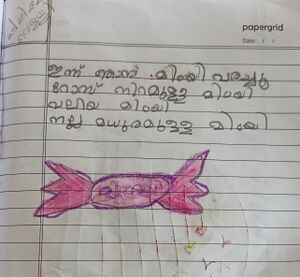 papergrid
Date: / /
ഇന്ന് ഞാൻ മിഠയി വരച്ചു
റോസ് നിറമുള്ള മിഠയി
വലിയ മിഠയി
നല്ല മധുരമുള്ള മിഠയി